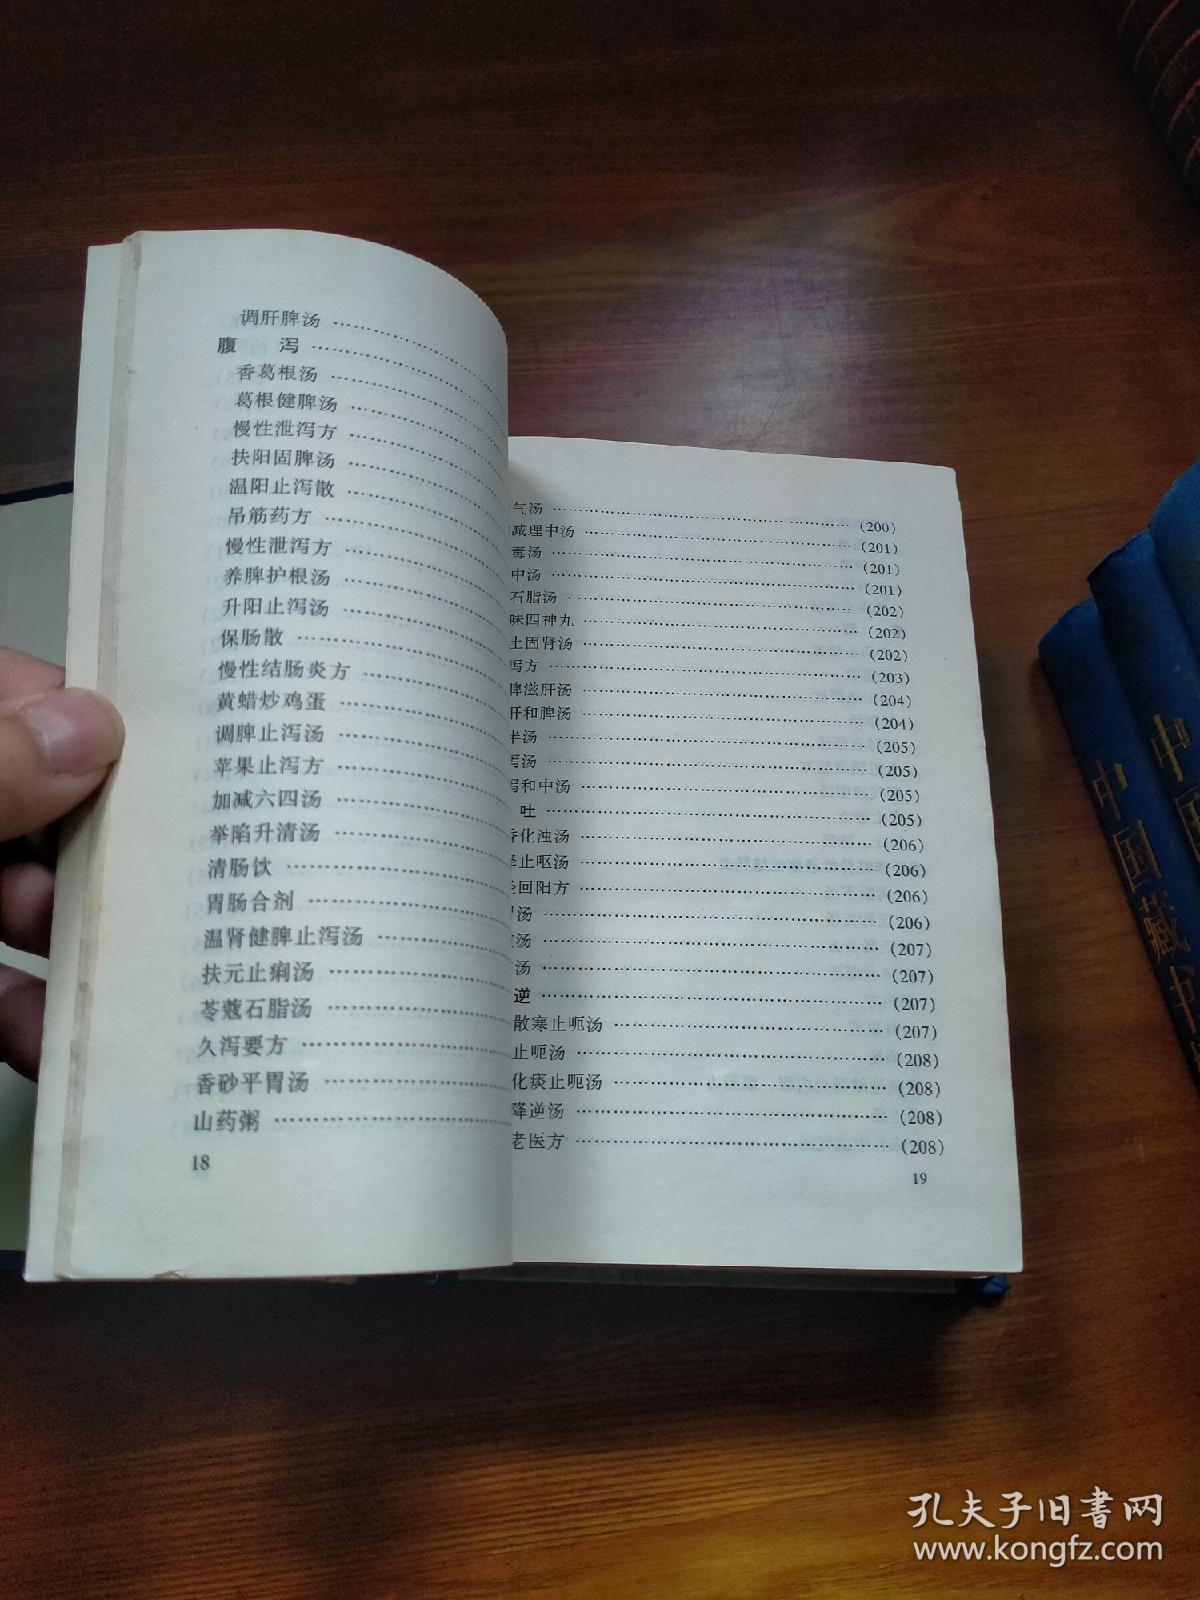 调肝脾汤
腹 泻
香葛根汤
葛根健脾汤
慢性泄泻方
扶阳固脾汤
温阳止泻散
吊筋药方
慢性泄泻方
养脾护根汤
升阳止泻汤
保肠散
慢性结肠炎方
黄蜡炒鸡蛋
调脾止泻汤
苹果止泻方
加减六四汤
举陷升清汤
清肠饮
胃肠合剂
温肾健脾止泻汤
扶元止痢汤
苓蔻石脂汤
久泻要方
香砂平胃汤
山药粥
18
气汤 (200)
减理中汤 (201)
毒汤 (201)
中汤 (201)
石脂汤 (202)
味四神丸 (202)
土固肾汤 (202)
泻方 (203)
脾滋肝汤 (204)
肝和脾汤 (204)
半汤 (205)
泻汤 (205)
泻和中汤 (205)
吐 (205)
香化浊汤 (206)
止呕汤 (206)
回阳方 (206)
汤 (206)
汤 (207)
汤 (207)
逆 (207)
散寒止呃汤 (207)
止呃汤 (208)
化痰止呃汤 (208)
降逆汤 (208)
老医方 (208)
19
中国藏书
中国
孔夫子旧书网
www.kongfz.com